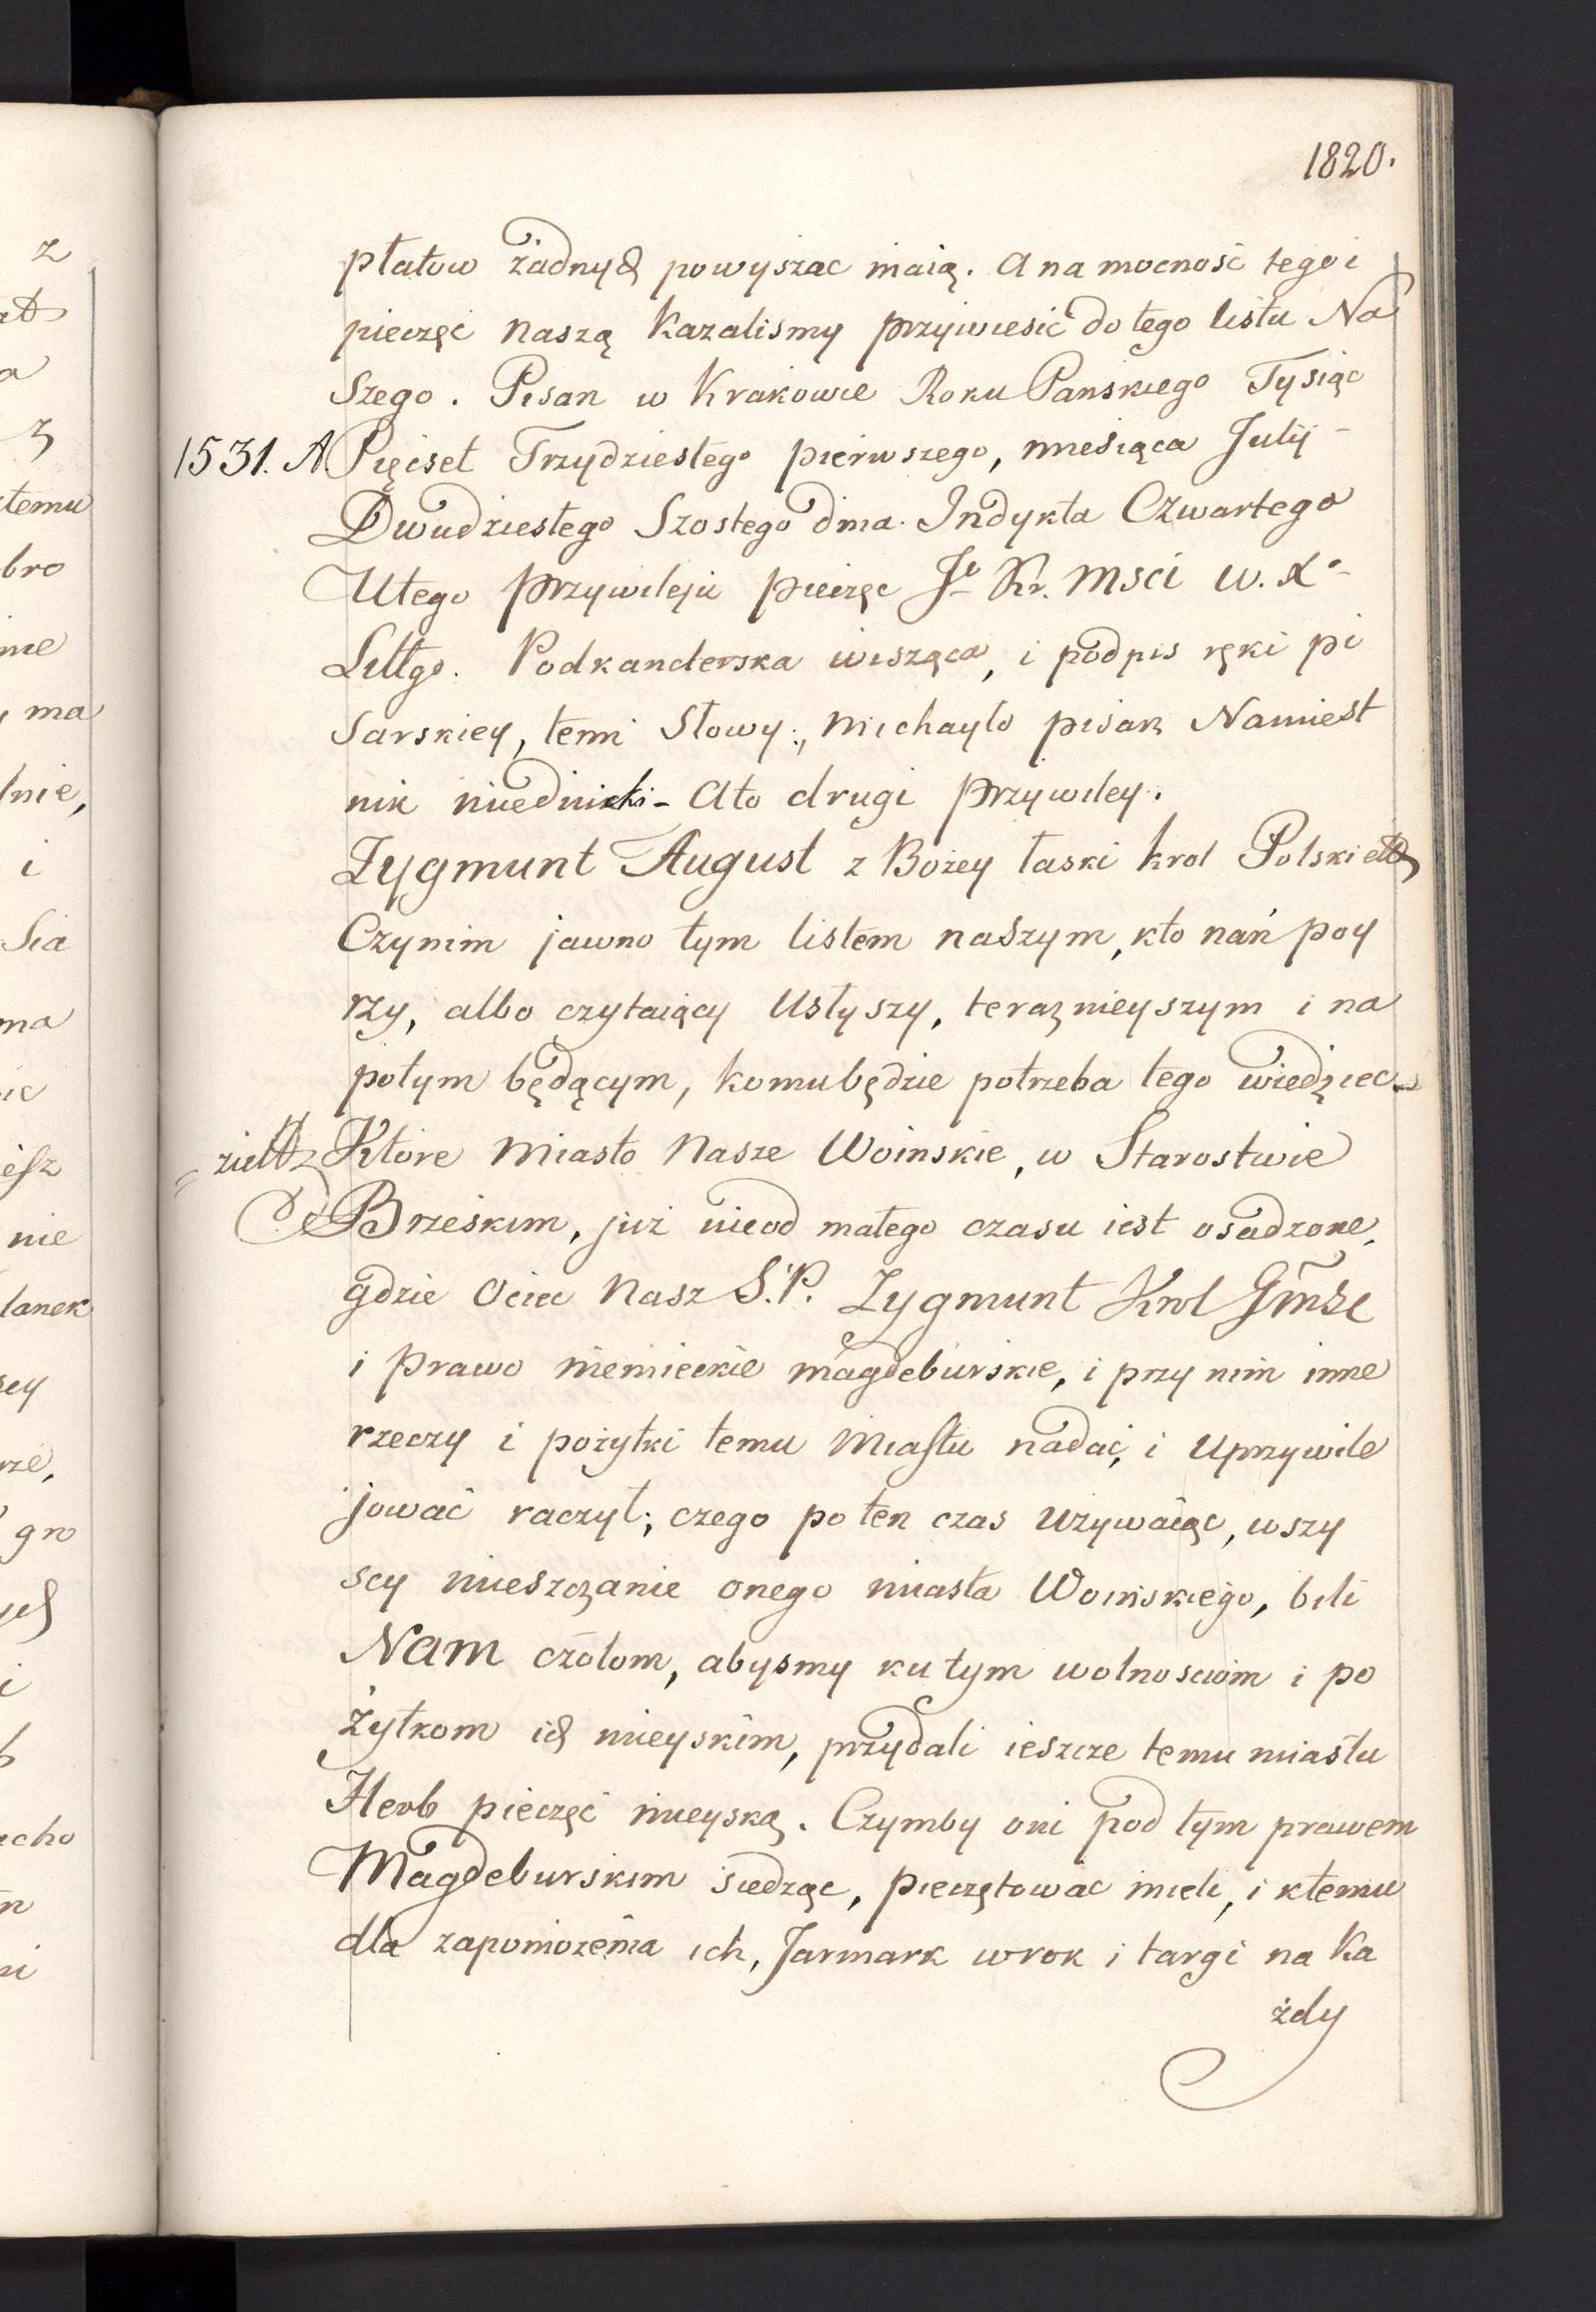 1820.
płatow żadnych powyszac maią. A na mocność tego i
pieczęć naszą Kazalismy przywiesić do tego listu Na
szego. Pisan w Krakowie Roku Panskiego Tysiąc
1531. A Pięcset Trzydziestego pierwszego, miesiąca Julij -
Dwudziestego Szostego dnia. Indykta Czwartego
U tego przywileju pieczęc Je Kr. Msci W. X.
Littgo. Podkanclerska wisząca, i podpis ręki pi
sarskiey, temi Słowy:, Michayło pisarz Namiest
nik miednicki - A to drugi przywiley.
Zygmunt August z Bożey łaski krol Polski etc
Czynim jawno tym listem naszym, kto nań poy
rzy, albo czytaiący Usłyszy, teraznieyszym i na
potym będącym, komu będzie potrzeba tego wiedziec
Ktore Miasto Nasze Woinskie, w Starostwie
Brzeskim, już nie od małego czasu iest osadzone,
gdzie Ociec Nasz S.P. Zygmunt Krol Gmsc
i Prawo niemieckie magdeburskie, i przy nim inne
rzeczy i pożytki temu Miastu nadać, i Uprzywile
jować raczył; czego po ten czas Używaiąc, wszy
scy mieszczanie onego miasta Woinskiego, bili
Nam czołom, abysmy ku tym wolnosciom i po
żytkom ich mieyskim, przydali ieszcze temu miastu
Herb pieczęć mieyską. Czymby oni pod tym prawem
Magdeburskim siedząc, pieczętować mieli, i ktemu
dla zapomożenia ich, Jarmark w rok i targi na Ka
żdy
z
a
3
temu
bro
me
ma
lnie,
i
sia
ma
ic
iesz
nie
lanek
zey
rze,
gro
i
echo
n
ni